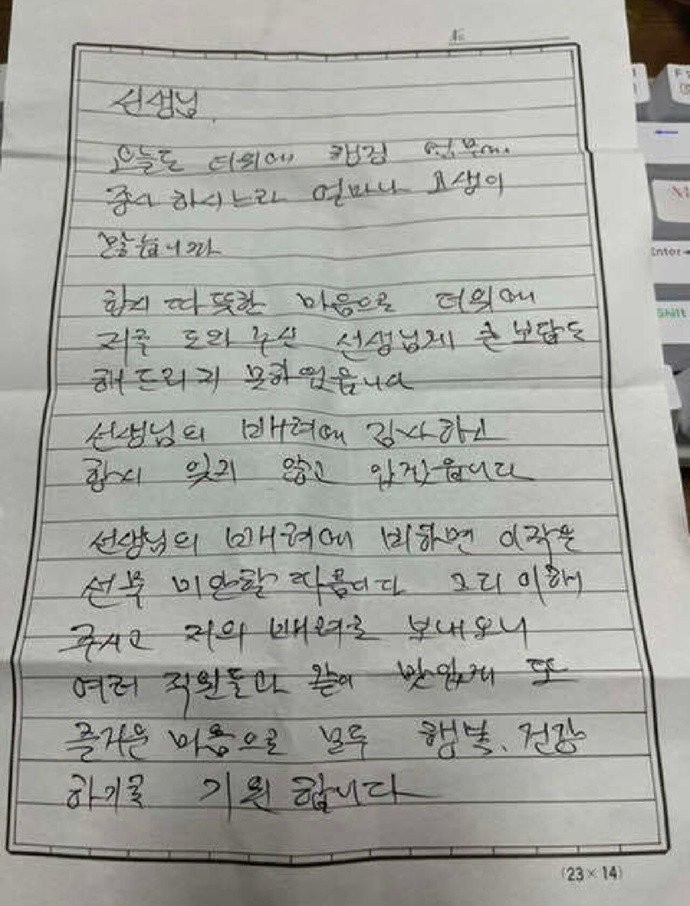 선생님,
오늘도 더위에 행정 업무에
종사 하시느라 얼마나 고생이
많습니까
항시 따뜻한 마음으로 더위에
저를 도와 주신 선생님께 큰 보답도
해 드리지 못하였읍니다
선생님의 배려에 감사하고
항시 잊지 않고 있겠읍니다
선생님의 배려에 비하면 이 작은
선물 미안할 따름이다 그리 이해
주시고 저의 배려로 보내오니
여러 직원들과 같이 맛있게 또
즐거운 마음으로 모두 행복, 건강
하기를 기원 합니다
(23 × 14)
Enter
Shift